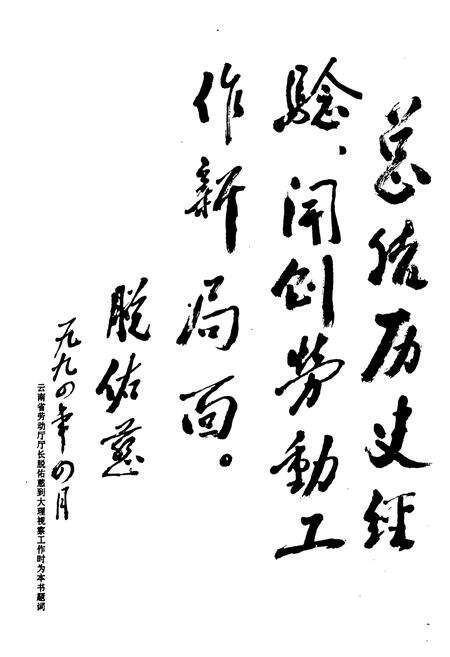 总结历史经
验、开创劳動工
作新局面。
脱佑慈
一九九四年四月
云南省劳动厅厅长脱佑慈到大理视察工作时为本书题词